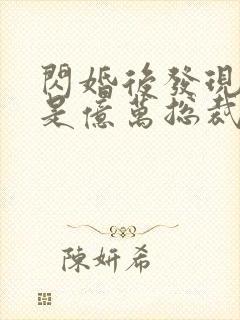 閃婚後發現
是億萬總裁
陳妍希